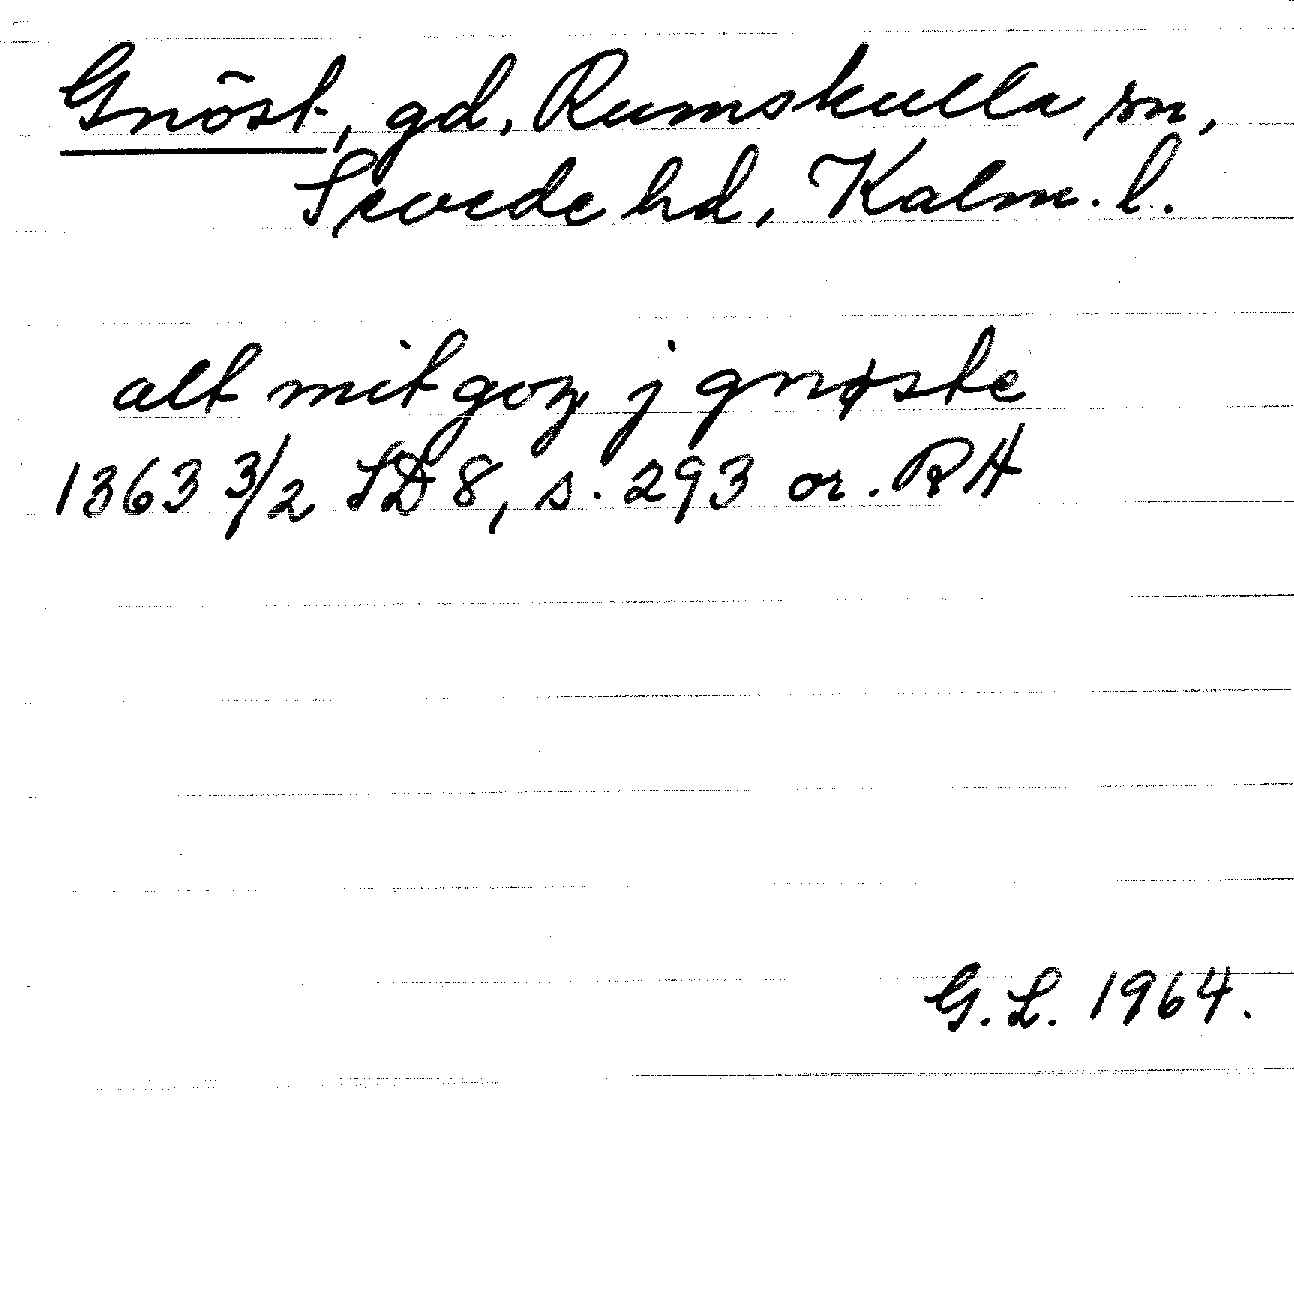 Gnöst, gd, Rumskulla sn,
Sevede hd, Kalm. l.
alt mit goz j gnøste
1363 3/2 SD 8, s. 293 or. RA
G. L. 1964.